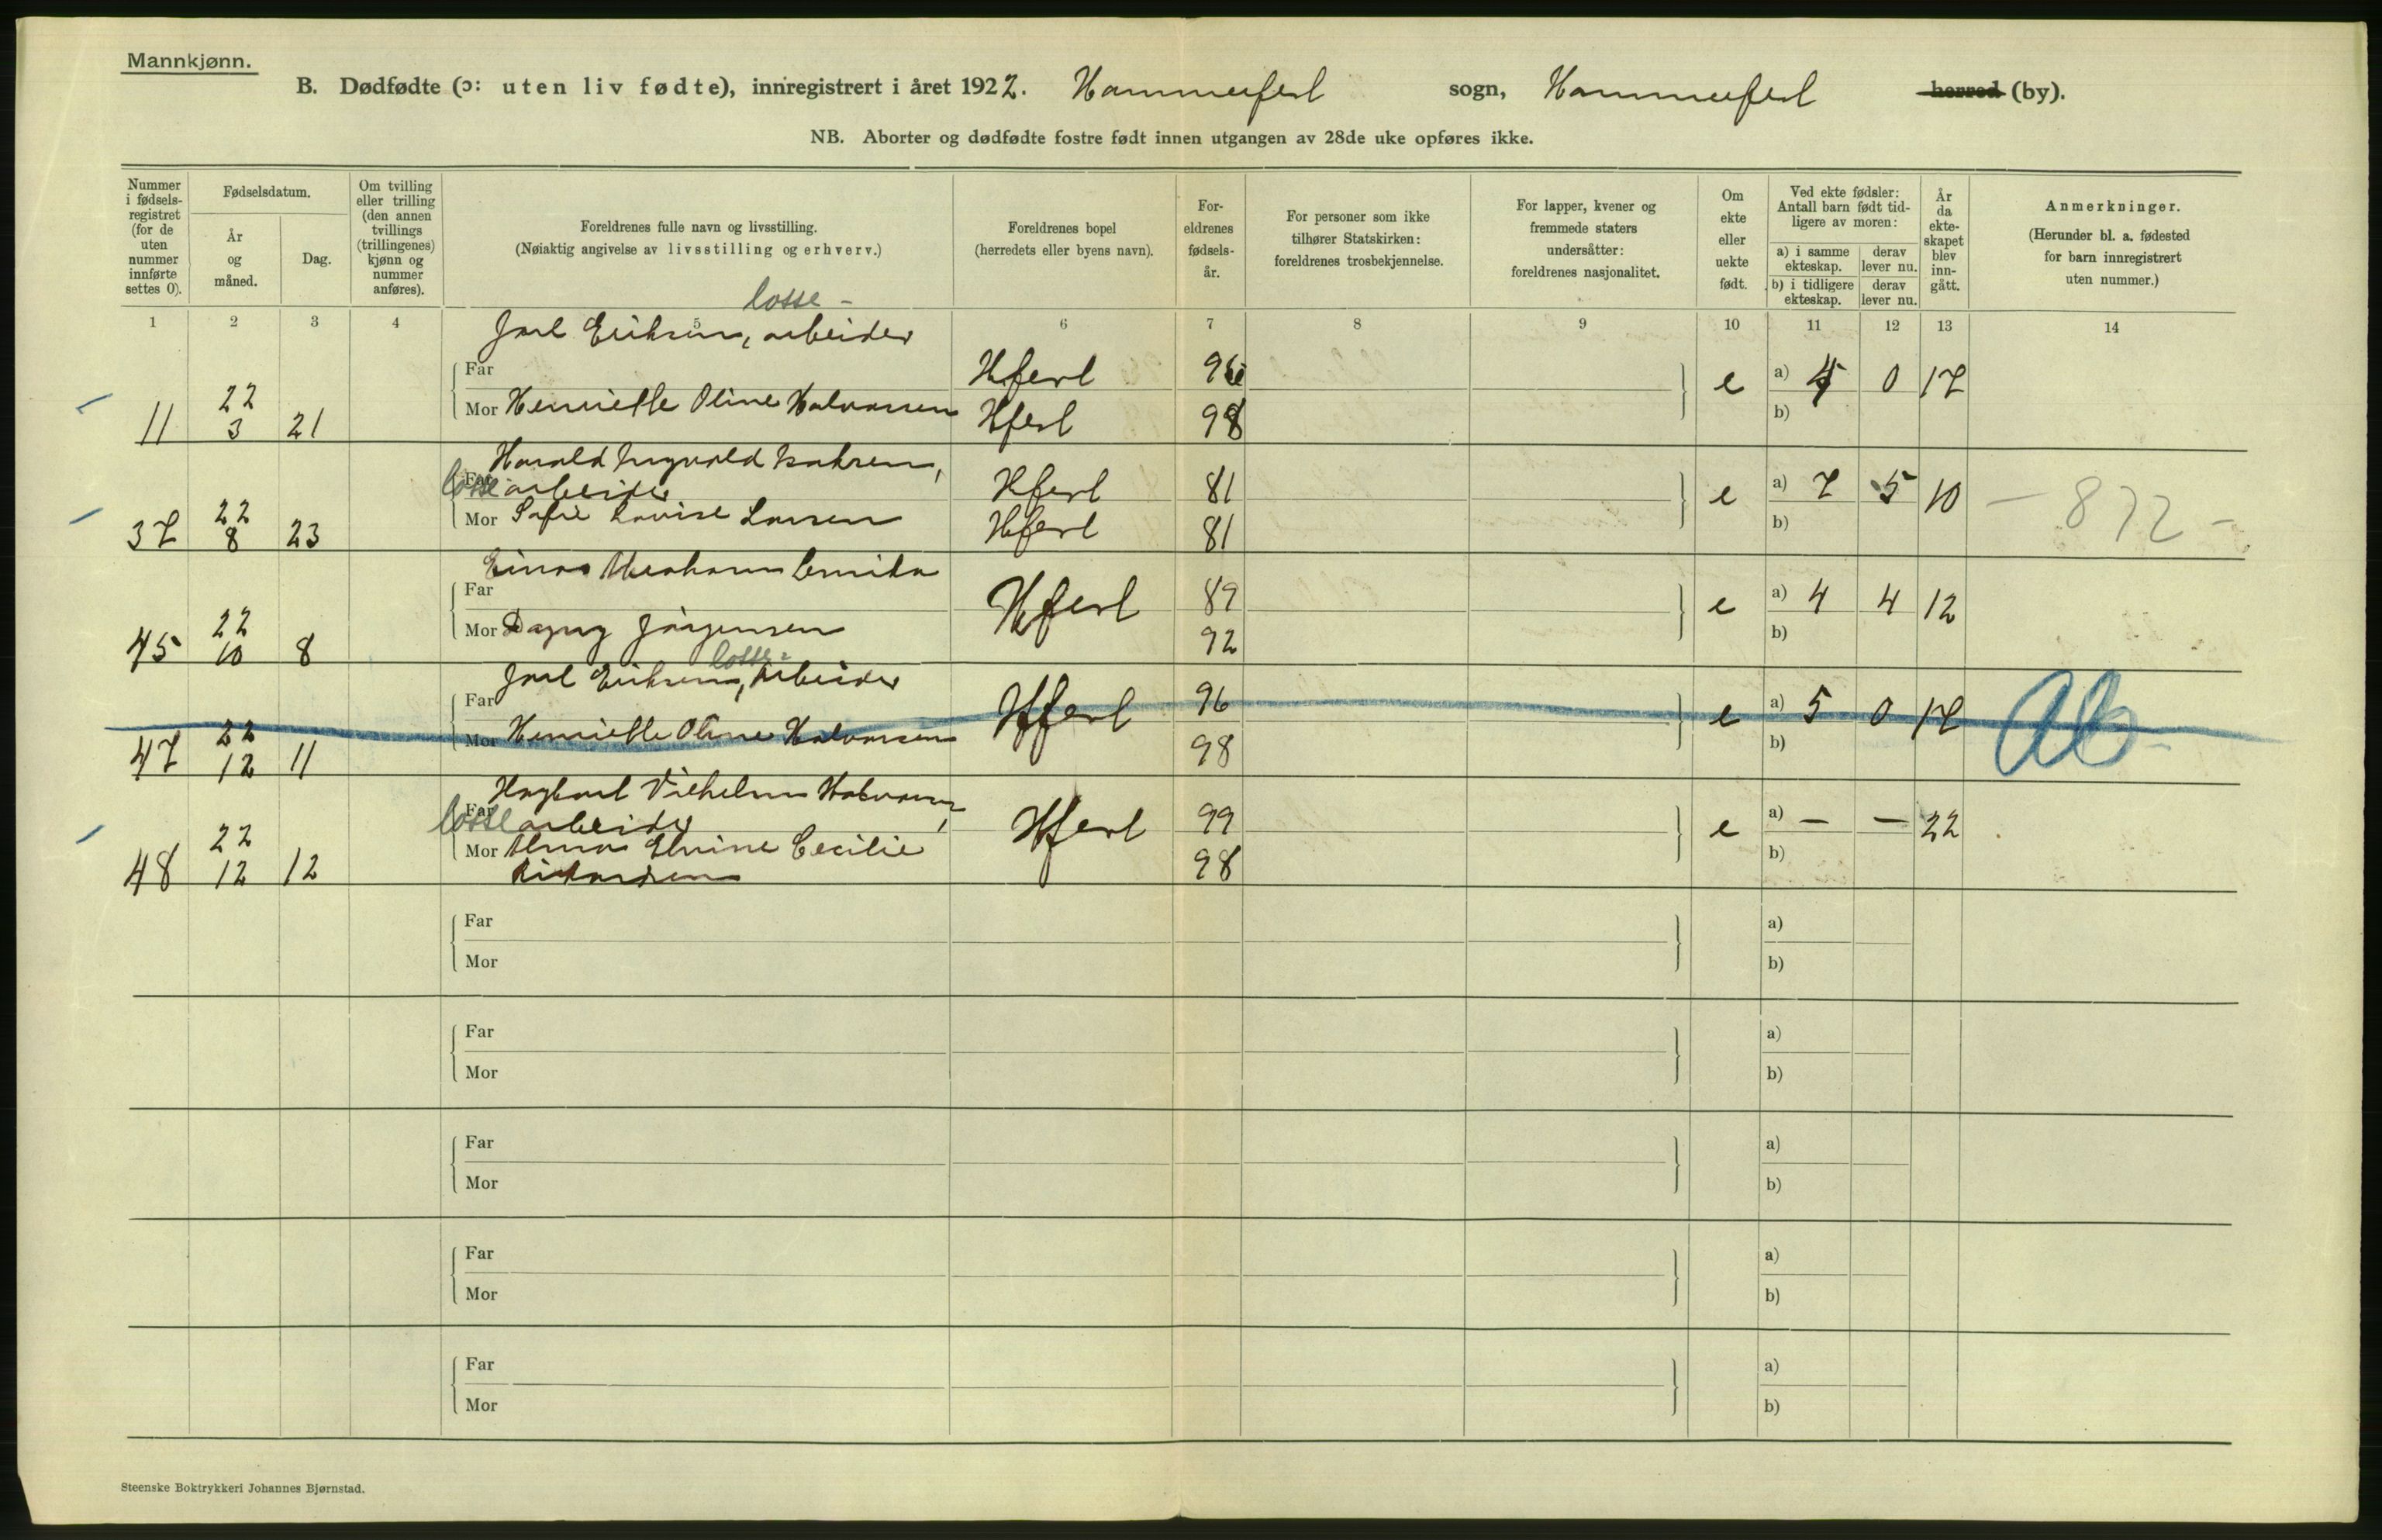 Mannkjønn.
B. Dødfødte (ɔ: uten liv fødte), innregistrert i året 1922. Hammerfest sogn, Hammerfest herred (by).
NB. Aborter og dødfødte fostre født innen utgangen av 28de uke opføres ikke.
Nummer i fødsels-registret (for de uten nummer innførte settes 0).
Fødselsdatum.
År og måned.
Dag.
Om tvilling eller trilling (den annen tvillings (trillingenes) kjønn og nummer anføres).
Foreldrenes fulle navn og livsstilling.
(Nøiaktig angivelse av livsstilling og erhverv.)
Foreldrenes bopel (herredets eller byens navn).
For-eldrenes fødsels-år.
For personer som ikke tilhører Statskirken: foreldrenes trosbekjennelse.
For lapper, kvener og fremmede staters undersåtter: foreldrenes nasjonalitet.
Om ekte eller uekte født.
Ved ekte fødsler: Antall barn født tid-ligere av moren:
a) i samme ekteskap. derav lever nu.
b) i tidligere ekteskap. derav lever nu.
År da ekte-skapet blev inn-gått.
Anmerkninger.
(Herunder bl. a. fødested for barn innregistrert uten nummer.)
1 2 3 4 5 6 7 8 9 10 11 12 13 14
losse-
Jarl Eriksen, arbeider
Far Hfest 96 e a) 4 0 17
11 22 3 21 Mor Henriette Oline Halvorsen Hfest 98 b)
Harald Ingvald Isaksen,
Far losse arbeider Hfest 81 e a) 7 5 10 - 872 -
37 22 8 23 Mor Sofie Lovise Larsen Hfest 81 b)
Einar Abraham
Far Hfest 89 e a) 4 4 12
45 22 10 8 Mor Dagny Jörgensen 92 b)
losse-
Jarl Eriksen, Arbeider
Far Hfest 96 e a) 5 0 17 Ab
47 22 12 11 Mor Henriette Oline Halvorsen 98 b)
Hagbart Vilhelm Halvorsen,
Far losse arbeider Hfest 99 e a) - - 22
48 22 12 12 Mor Alma Elvine Cecilie 98 b)
Rikardsen
Far a)
Mor b)
Far a)
Mor b)
Far a)
Mor b)
Far a)
Mor b)
Far a)
Mor b)
Steenske Boktrykkeri Johannes Bjørnstad.